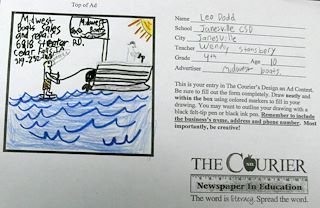 Top of Ad
Midwest
Boats Sales
and repair
6818
RD.
Cedar
319-232-
Midwest
Boats
Name Leo Dodd
School Janesville CSD
City Janesville
Teacher Wendy Stansbery
Grade 4th Age 10
Advertiser Midwest boats
This is your entry in The Courier's Design an Ad Contest.
Be sure to fill out the form completely. Draw neatly and
within the box using colored markers to fill in your
drawing. You may want to outline your drawing with a
black felt-tip pen or black ink pen. Remember to include
the business's name, address and phone number. Most
importantly, be creative!
THE COURIER
Newspaper In Education
The word is literacy. Spread the word.